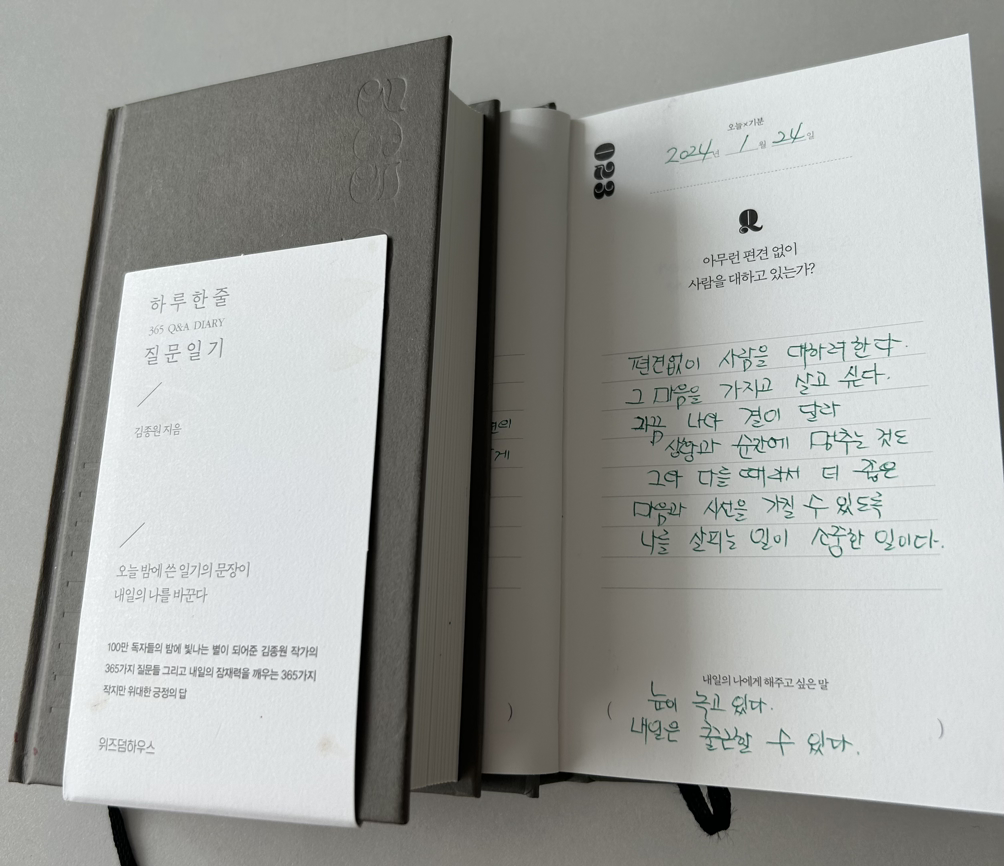 365
하루한줄
365 Q&A DIARY
질문일기
김종원 지음
오늘 밤에 쓴 일기의 문장이
내일의 나를 바꾼다
100만 독자들의 밤에 빛나는 별이 되어준 김종원 작가의
365가지 질문들 그리고 내일의 잠재력을 깨우는 365가지
작지만 위대한 긍정의 답
위즈덤하우스
게
)
023
오늘×기분
2024년 1월 24일
Q
아무런 편견 없이
사람을 대하고 있는가?
편견없이 사람을 대하려 한다.
그 마음을 가지고 살고 싶다.
가끔 나와 결이 달라
상황과 순간에 맞추는 것도
그와 다를 때라서 더 좋은
마음과 시선을 가질 수 있도록
나를 살피는 일이 소중한 일이다.
내일의 나에게 해주고 싶은 말
( 눈이 녹고 있다.
내일은 출근할 수 있다. )